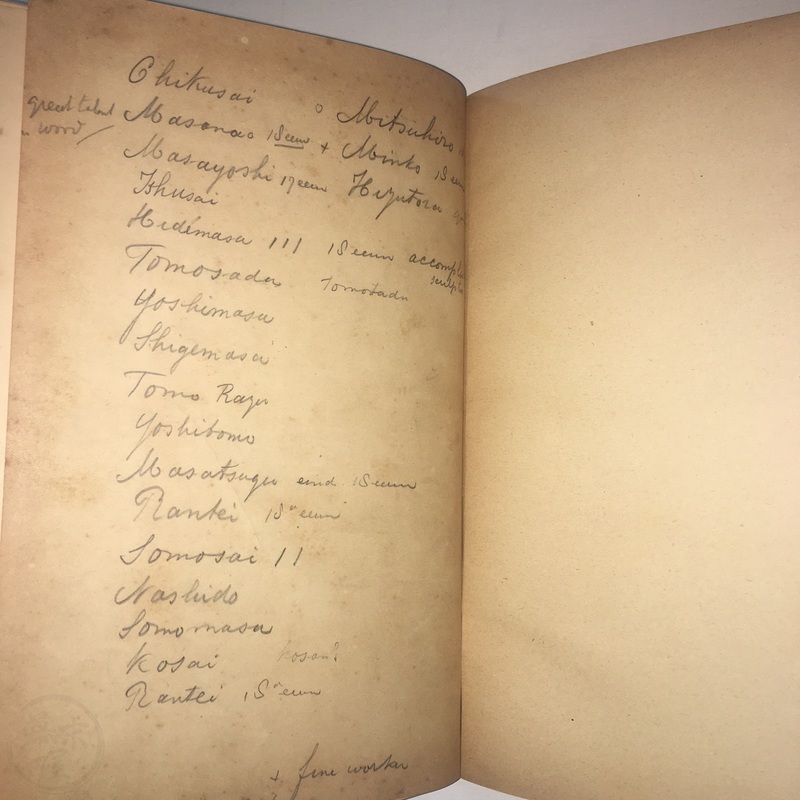 Chikusai ° Mitsuhiro
great talent Masanao 18 cen + Minko 18 cen
word / Masayoshi 19 cen
Ikkusai
Hidémasa III 18 cen
Tomosada Tomotada
Yoshimasa
Shigemasa
Tomo
Yoshitomo
Masatsugu end 18 cen
Rantei 18" cen
Somosai II
Nashido
Somomasa
Kosai Kosan?
Rantei 18" cen
+ fine worker